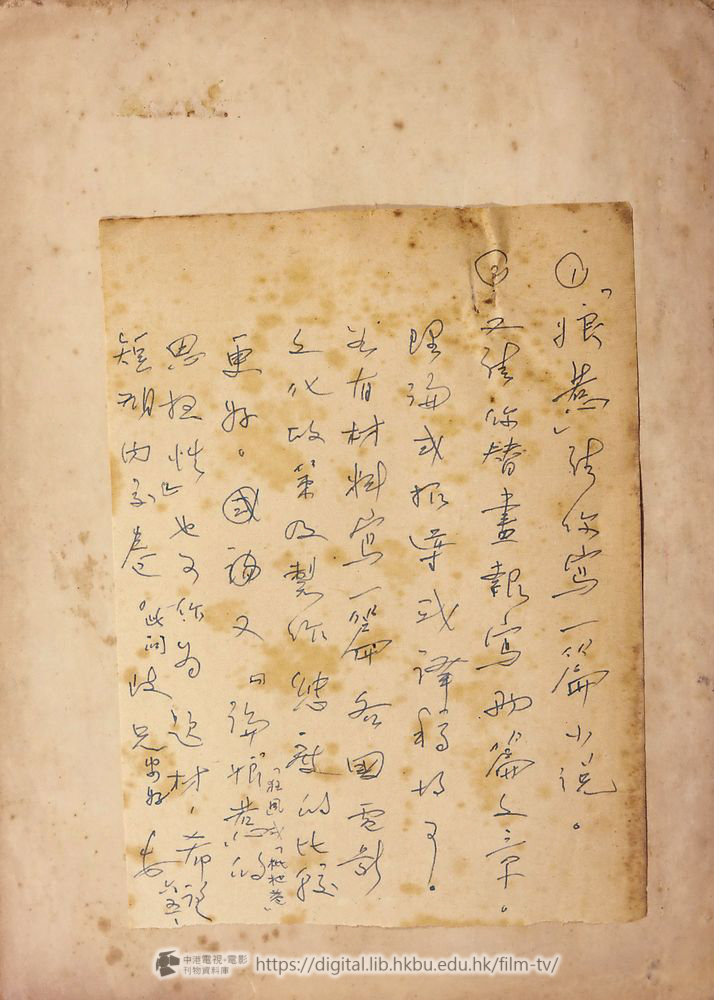 ①「狼巷」請你寫一篇小説。
②又請你替畫報寫兩篇文章。
理論或報導或譯稿均可。
若有材料寫一篇各國電影
文化政策及製作態度的比較
更好。國語文「論狼巷的
「狂風」或「枇杷巷」
思想性」也可作為題材，希望
短期內予卷 此問 岐兄安好
中港電視·電影
刊物資料庫
https://digital.lib.hkbu.edu.hk/film-tv/